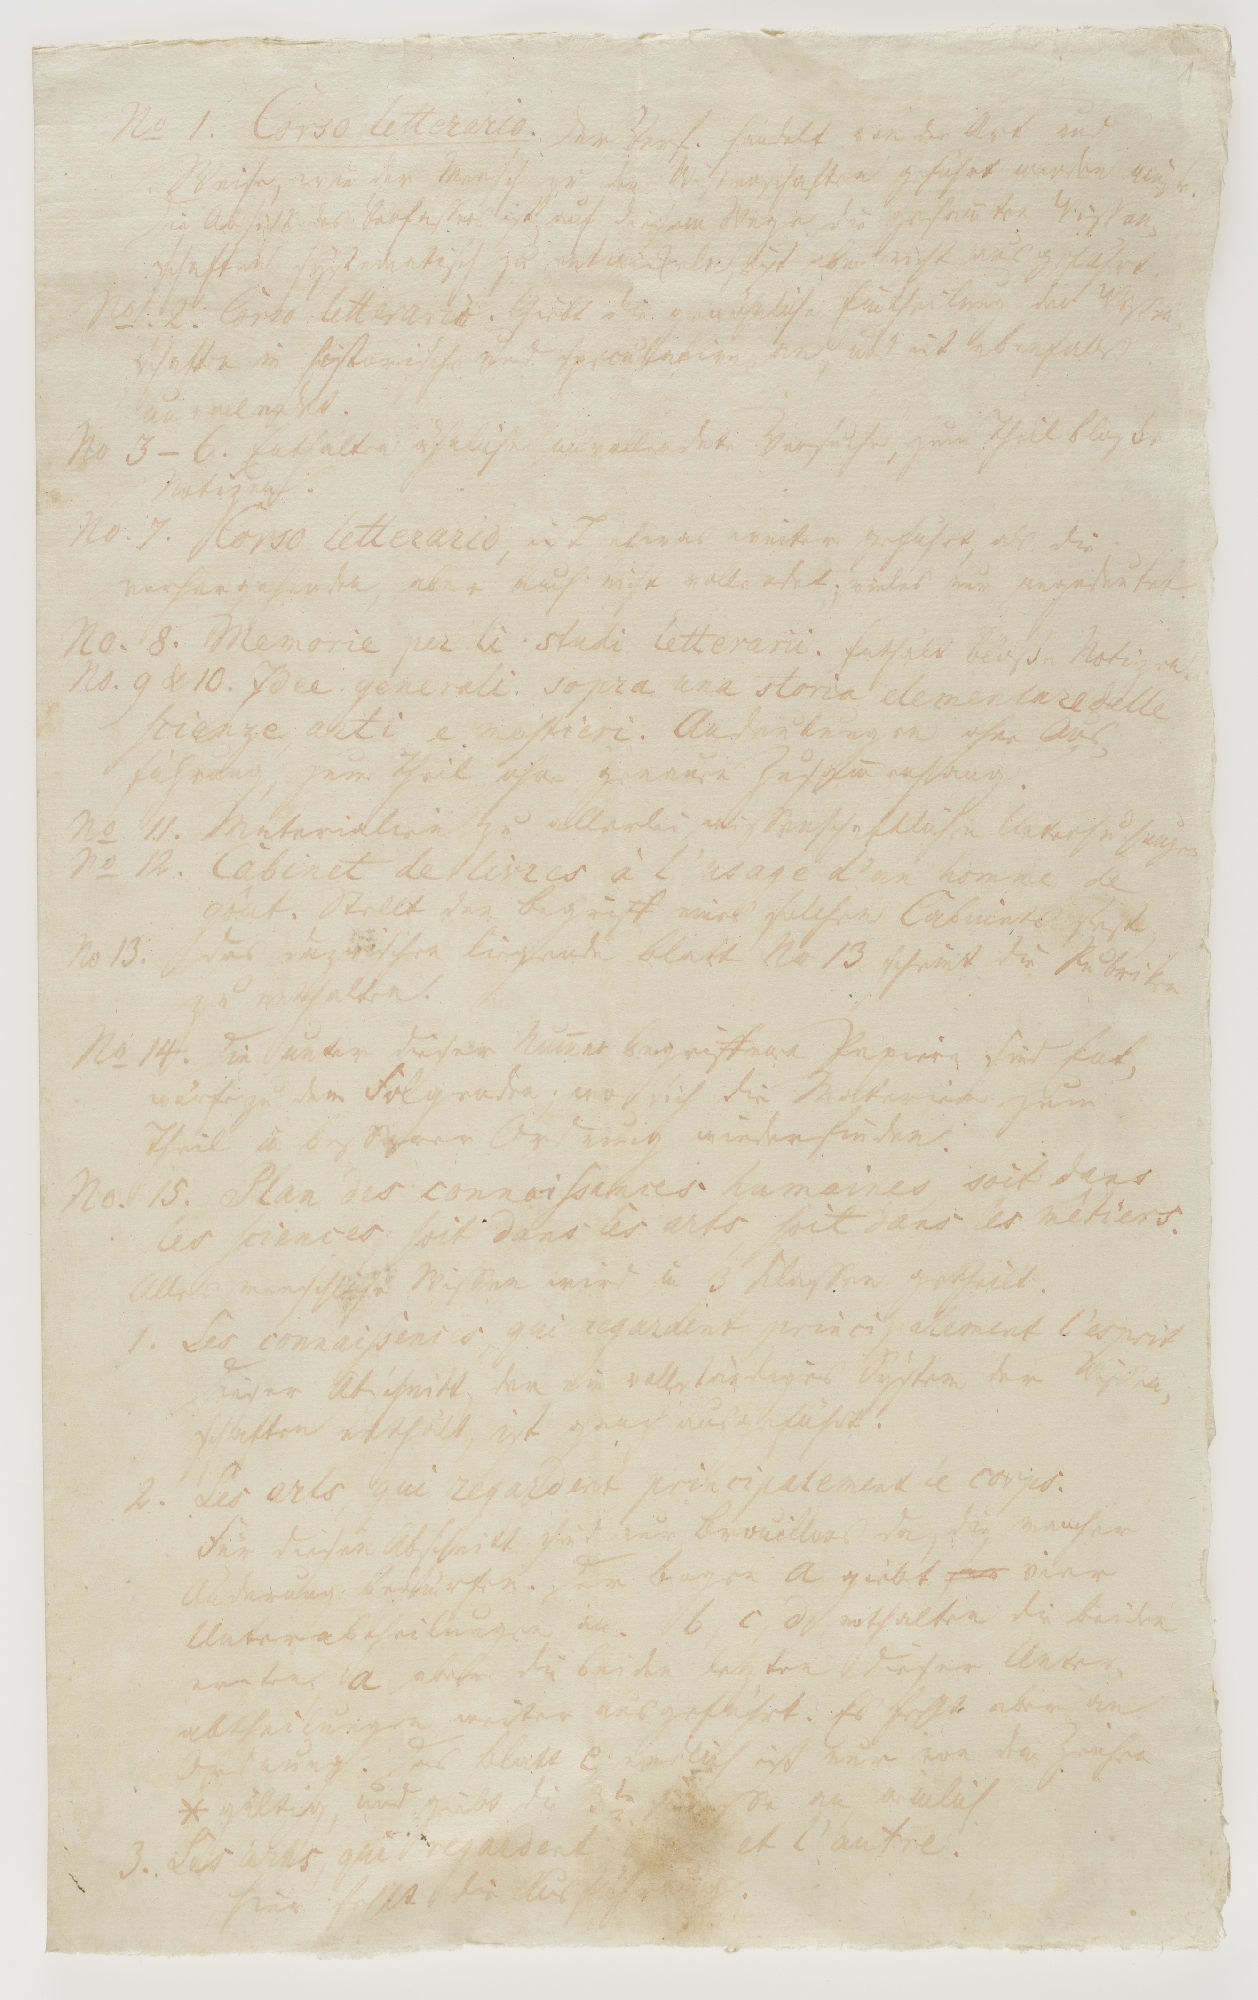 1
No 1. Corso letterario. Der Verf. handelt von der Art und
Weise, wie der Mensch zu den Wissenschaften geführt werden müße.
Die Absicht des Verfassers ist, auf diesem Wege die gesam̅ten Wissen,
schaften systematisch zu entwickeln, ist aber nicht ausgeführt.
No. 2. Corso letterario. Giebt die gewöhnliche Eintheilung der Wissen,
schaften in historische und speculative an, und ist ebenfalls
unvollendet.
No 3 – 6. Enthalten ähnliche unvollendete Versuche, zum Theil bloße
Notizen.
No. 7. Corso letterario, ist etwas weiter geführt, als die
vorhergehenden, aber auch nicht vollendet; vieles nur angedeutet.
No. 8. Memorie per li studi letterarii. Enthält bloße Notizen.
No. 9 & 10. Idee generali sopra una storia elementare delle
scienze, arti e mestieri. Andeutungen ohne Aus,
führung, zum Theil ohne genauen Zusam̅enhang.
No 11. Materialien zu allerlei wissenschaftlichen Untersuchungen
No 12. Cabinet de livres à l'usage d'un homme de
goût. Stellt den Begriff eines solchen Cabinets fest,
No 13. das dazwischen liegende Blatt No 13 scheint die Rubriken
zu enthalten.
No 14. Die unter dieser Num̅er begriffenen Papiere sind Ent,
würfe zu dem Folgenden, wo sich die Materien zum
Theil in besserer Ordnung wiederfinden.
No. 15. Plan des connaissances humaines soit dans
les sciences soit dans les arts, soit dans les métiers.
Alles menschliche Wissen wird in 3 Klassen getheilt.
1. Les connaissences, qui regardent principalement l'esprit
Dieser Abschnitt, der ein vollständiges System der Wissen,
schaften enthält, ist ganz ausgeführt.
2. Les arts, qui regardent principalement le corps.
Für diesen Abschnitt sind nur Brouillons da, die mancher
Änderung bedürfen. Der Bogen A giebt vier
Unterabtheilungen an. b, c, d, enthalten die beiden
ersten, a aber die beiden letzten dieser Unter,
abtheilungen weiter ausgeführt. Es fehlt aber an
Ordnung. Das Blatt e endlich ist nur von dem Zeichen
* gültig, und giebt die 3te Klasse an nämlich
3. Les arts, qui regardent et l'autre.
hier fehlt die Ausführung.